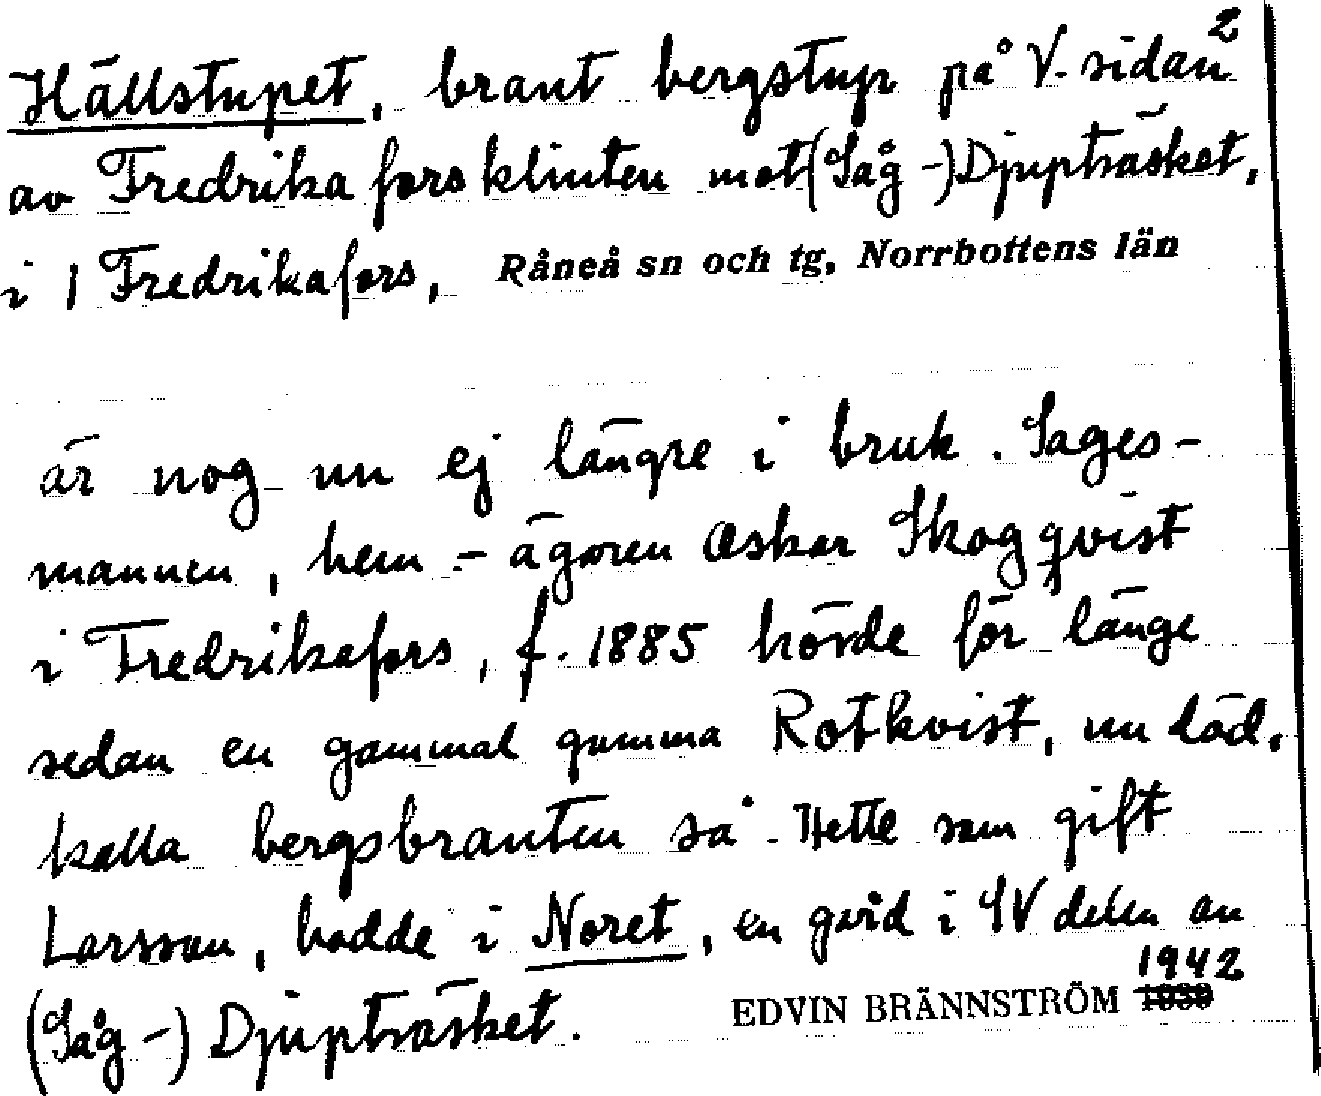 2
Hällstupet, brant bergstup på V. sidan
av Fredrikaforsklinten mot (Såg-) Djupträsket,
i 1 Fredrikafors, Råneå sn och tg, Norrbottens län
är nog nu ej längre i bruk. Sages-
mannen, hem-ägaren Oskar Skogqvist
i Fredrikafors, f. 1885 hörde för länge
sedan en gammal gumma Rotkvist, nu död,
kalla bergsbranten så. Hette som gift
Larsson, bodde i Noret, en gård i SV delen av
(Såg-) Djupträsket. EDVIN BRÄNNSTRÖM 1939 1942